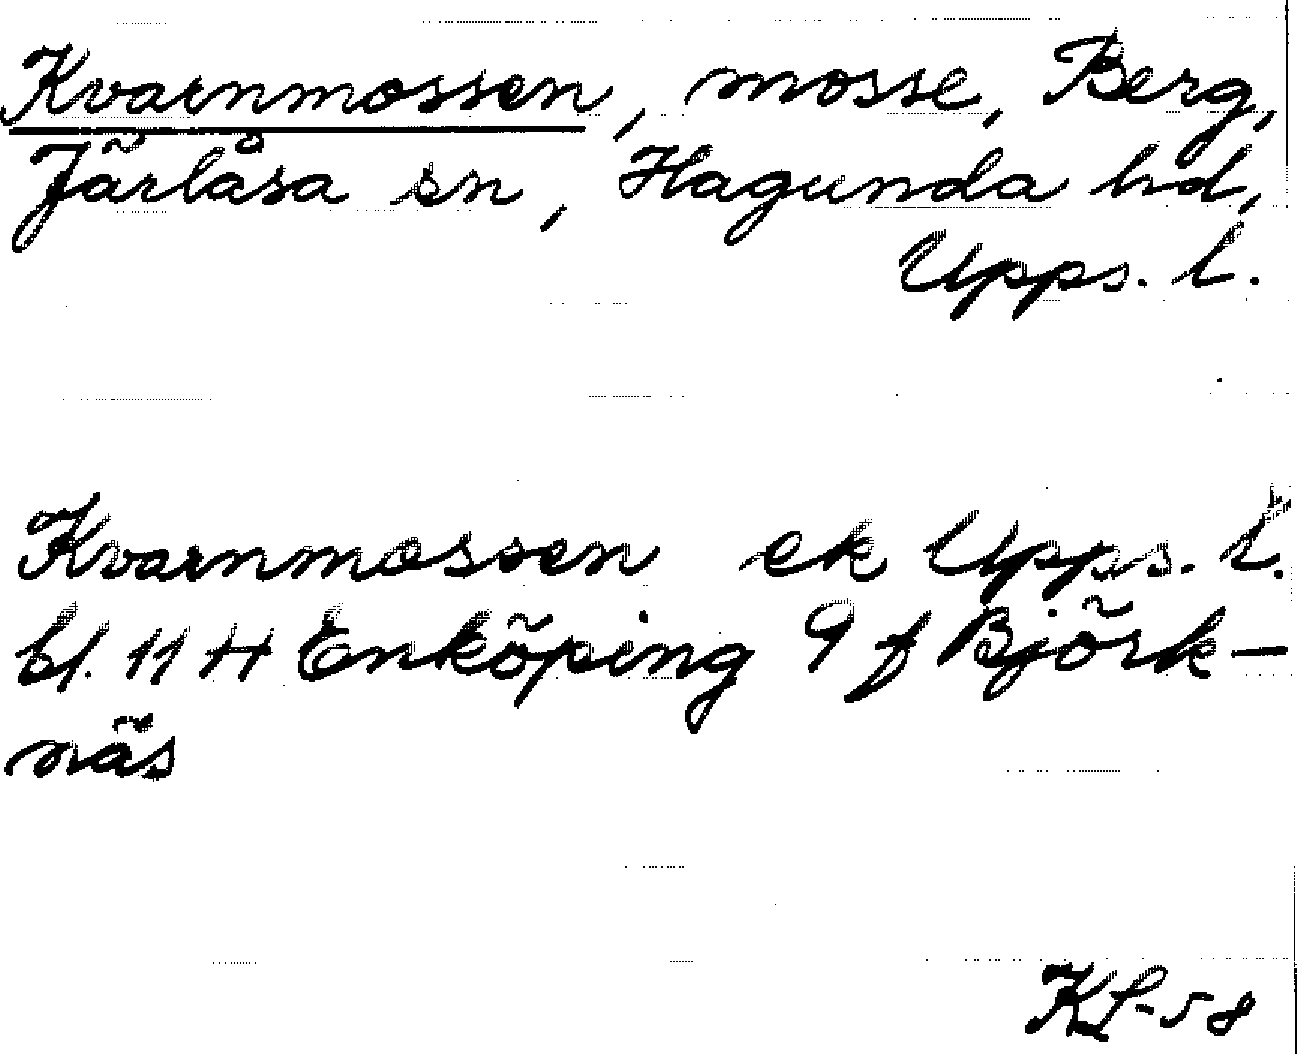 Kvarnmossen, mosse, Berg,
Järlåsa sn, Hagunda hd,
Upps. l.
Kvarnmossen ek Upps. l.
bl. 11 H Enköping 9 f Björk-
näs
KL-58